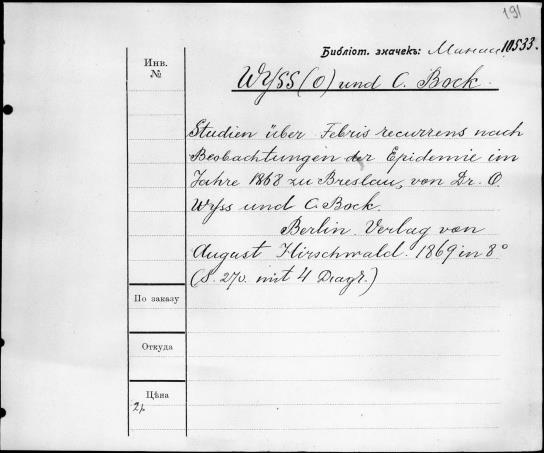 191
Библіот. значекъ: Минас. 10533.
Инв.
№
Wyss (O) und C. Bock.
Studien über Febris recurrens nach
Beobachtungen der Epidemie im
Jahre 1868 zu Breslau, von Dr. O.
Wyss und C. Bock.
Berlin. Verlag von
August Hirschwald. 1869 in 8°
(S. 270. mit 4 Diagr.)
По заказу
Откуда
Цѣна
2р.